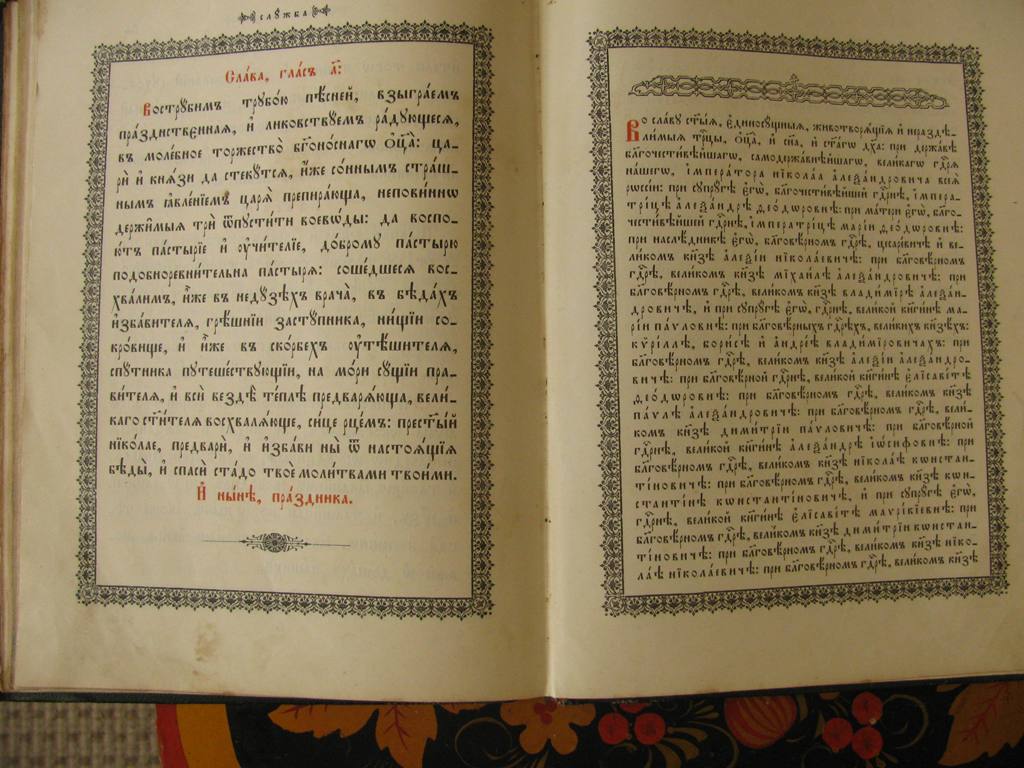 слꙋжба
Сла́ва, гла́съ а҃:
Вострꙋ́бимъ трꙋбо́ю пѣ́сней, взыгра́емъ
пра́зднственная, и҆ ликовствꙋ́емъ ра́дꙋющеся,
въ моле́бное торжество̀ бг҃оно́снагѡ ѻ҆ц҃а̀: ца-
рі̀ и҆ кнѧ̑зи да стекꙋ́тсѧ, и҆́же со́ннымъ стра́ш-
нымъ ꙗ҆вле́нїемъ царѧ̀ препира́юща, непови́ннѡ
держи̑мыѧ трѝ ѿпꙋсти́ти воевѡ́ды: да воспо-
ю́тъ па́стырїе и҆ ᲂу҆чи́телїе, до́бромꙋ па́стырю
подоборевни́тельна па́стырѧ: соше́дшесѧ вос-
хва́лимъ, и҆́же въ недꙋ́зѣхъ врача̀, въ бѣда́хъ
и҆зба́вителѧ, грѣ́шнїи застꙋ́пника, ни́щїи со-
кро́вище, и҆ и҆́же въ ско́рбехъ ᲂу҆тѣ́шителѧ,
спꙋ́тника пꙋтеше́ствꙋющїи, на мо́ри сꙋ́щїи пра-
ви́телѧ, и҆ всѝ вездѣ̀ те́плѣ предварѧ́юща, вели́-
каго ст҃и́телѧ восхвалѧ́юще, си́це рце́мъ: прест҃ы́й
нїко́лае, предварѝ, и҆ и҆зба́ви ны̀ ѿ настоѧ́щїѧ
бѣды̀, и҆ спасѝ ста́до твоѐ моли́твами твои́ми.
И҆ ны́нѣ, пра́здника.
Во сла́вꙋ ст҃ы́ѧ, є҆диносꙋ́щныѧ, животворѧ́щїѧ и҆ нераздѣ́-
ли́мыѧ трⷪ҇цы, ѻ҆ц҃а̀, и҆ сн҃а, и҆ ст҃а́гѡ дх҃а: при держа́вѣ
бл҃гочести́вѣйшагѡ, самодержа́внѣйшагѡ, вели́кагѡ гдⷭ҇рѧ
на́шегѡ, і҆мпера́тора нїкола́а а҆леѯа́ндровича всеѧ̀
рѡссі́и: при сꙋпрꙋ́гѣ є҆гѡ̀, бл҃гочести́вѣйшей гдⷭ҇рнѣ, і҆мпера-
три́цѣ а҆леѯа́ндрѣ ѳео́дѡровнѣ: при ма́тери є҆гѡ̀, бл҃го-
чести́вѣйшей гдⷭ҇рнѣ, і҆мператри́цѣ марі́и ѳео́дѡровнѣ:
при наслѣ́дникѣ є҆гѡ̀, бл҃говѣ́рномъ гдⷭ҇рѣ, цесаре́вичѣ и҆ ве-
ли́комъ кнѧ́зѣ а҆леѯі́и нїкола́евичѣ: при бл҃говѣ́рномъ
гдⷭ҇рѣ, вели́комъ кнѧ́зѣ мїхаи́лѣ а҆леѯа́ндровичѣ: при
бл҃говѣ́рномъ гдⷭ҇рѣ, вели́комъ кнѧ́зѣ влади́мїрѣ а҆леѯа́н-
дровичѣ, и҆ при сꙋпрꙋ́гѣ є҆гѡ̀, гдⷭ҇рнѣ, вели́кой кнѧги́нѣ ма-
рі́и па́ѵловнѣ: при бл҃говѣ́рныхъ гдⷭ҇рѣхъ, вели́кихъ кнѧ́зѣхъ:
кѷрі́ллѣ, бори́сѣ и҆ а҆ндре́ѣ влади́мїровичахъ: при
бл҃говѣ́рномъ гдⷭ҇рѣ, вели́комъ кнѧ́зѣ а҆леѯі́и а҆леѯа́ндро-
вичѣ: при бл҃говѣ́рной гдⷭ҇рнѣ, вели́кой кнѧги́нѣ є҆лїсаве́тѣ
ѳео́дѡровнѣ: при бл҃говѣ́рномъ гдⷭ҇рѣ, вели́комъ кнѧ́зѣ
па́ѵлѣ а҆леѯа́ндровичѣ: при бл҃говѣ́рномъ гдⷭ҇рѣ, вели́-
комъ кнѧ́зѣ дими́трїи па́ѵловичѣ: при бл҃говѣ́рной
гдⷭ҇рнѣ, вели́кой кнѧги́нѣ а҆леѯа́ндрѣ і҆ѡ́сифовнѣ: при
бл҃говѣ́рномъ гдⷭ҇рѣ, вели́комъ кнѧ́зѣ нїкола́ѣ кѡнстан-
ті́новичѣ: при бл҃говѣ́рномъ гдⷭ҇рѣ, вели́комъ кнѧ́зѣ кѡн-
станті́нѣ кѡнстанті́новичѣ, и҆ при сꙋпрꙋ́гѣ є҆гѡ̀,
гдⷭ҇рнѣ, вели́кой кнѧги́нѣ є҆лїсаве́тѣ маѵрікі́евнѣ: при
бл҃говѣ́рномъ гдⷭ҇рѣ, вели́комъ кнѧ́зѣ дими́трїи кѡнстан-
ті́новичѣ: при бл҃говѣ́рномъ гдⷭ҇рѣ, вели́комъ кнѧ́зѣ нїко-
ла́ѣ нїкола́евичѣ: при бл҃говѣ́рномъ гдⷭ҇рѣ, вели́комъ кнѧ́зѣ